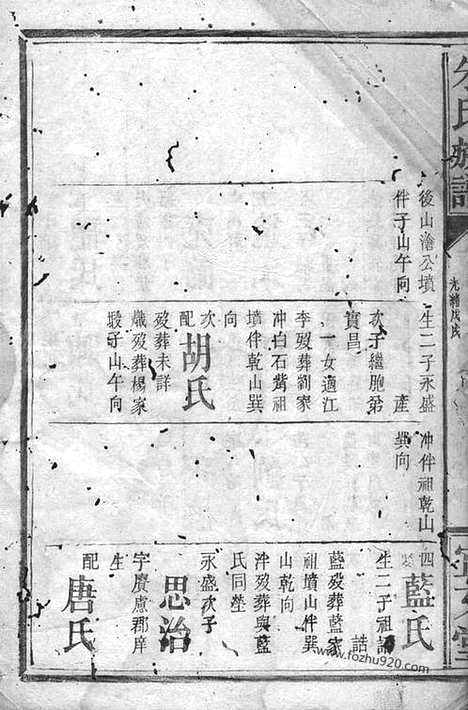 氏族譜
光緒戊戌
後山澮公墳
伴子山午向
生二子永盛
產
次子繼胞弟
實昌
一女適江
李歿葬劉家
冲白石觜祖
墳伴乾山巽
向
次
配
胡氏
歿葬未詳
熾歿葬楊家
塅子山午向
冲伴祖乾山
巽向
四
藍氏
生二子祖
誥
藍歿葬藍家
祖墳山伴巽
山乾向
冲歿葬與藍
氏同塋
永盛次子
思治
字廣慮郡庠
生
配
唐氏
www.fozhu920.com